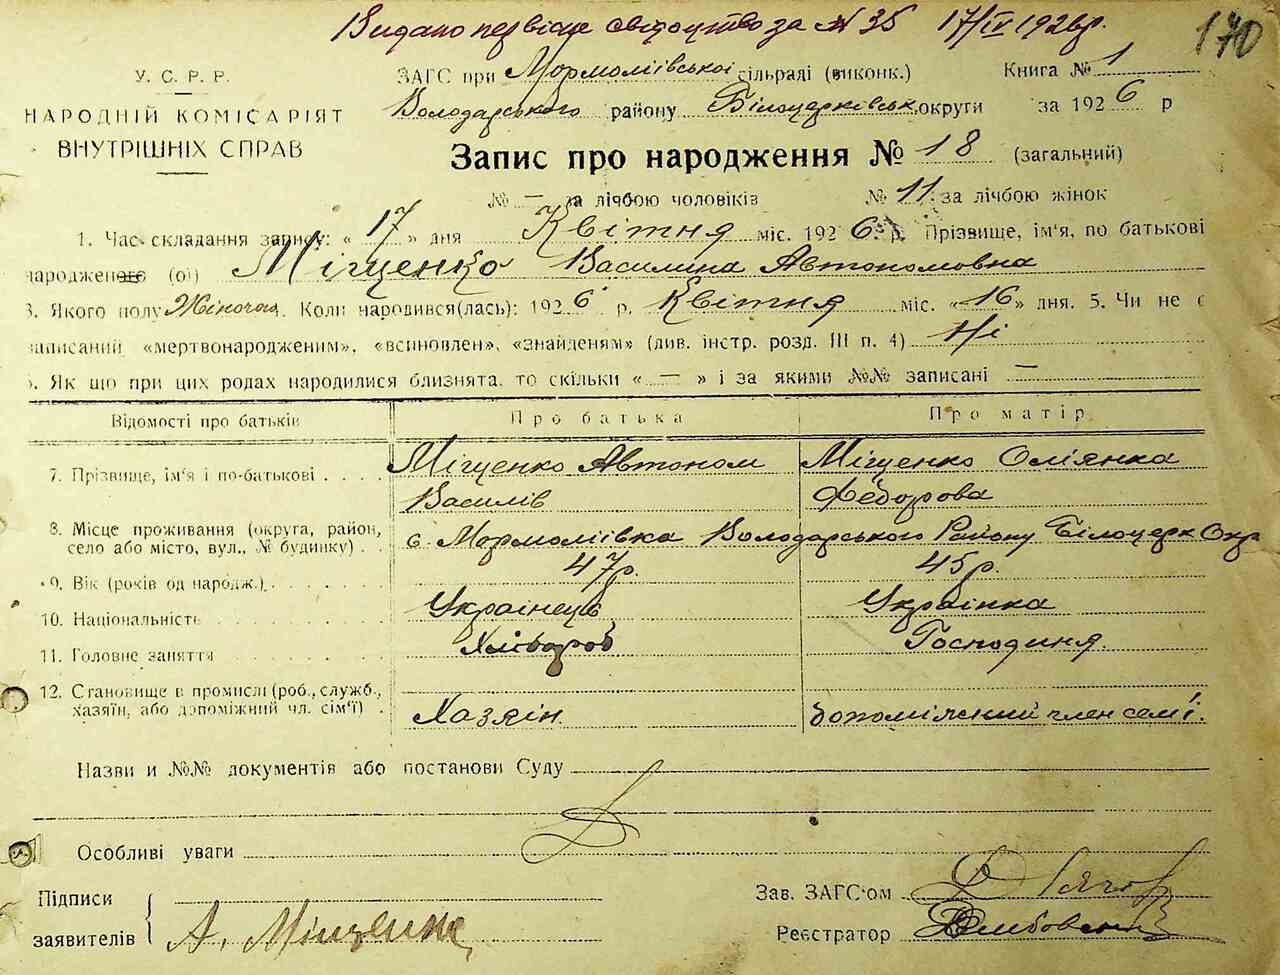 Видано первісне свідоцтво за № 35 17/IV 1926 р.
170
У. С. Р. Р.
НАРОДНІЙ КОМІСАРІЯТ
ВНУТРІШНІХ СПРАВ
ЗАГС при Мормоліївської сільраді (виконк.) Книга № 1
Володарського району Білоцерківськ. округи за 1926 р
Запис про народження № 18 (загальний)
№ — за лічбою чоловіків № 11 за лічбою жінок
1. Час складання запису: « 17 » дня Квітня міс. 1926 р. Прізвище, ім'я, по батькові
народженого (ої) Міщенко Василина Автономовна
3. Якого полу Жіночого. Коли народився(лась): 1926 р. Квітня міс. «16» дня. 5. Чи не є
записаний «мертвонародженим», «всиновлен», «знайденям» (див. інстр. розд. III п. 4) Ні
6. Як що при цих родах народилися близнята, то скільки « — » і за якими №№ записані —
Відомості про батьків Про батька Про матір
7. Прізвище, ім'я і по-батькові . . . . Міщенко Автоном Міщенко Оліянка
Василів Федорова
8. Місце проживання (округа, район,
село або місто, вул., № будинку) . . с. Мормоліївка Володарського Району Білоцерк Окр
9. Вік (років од народж.) 47 р. 45 р.
10. Національність Українець Українка
11. Головне заняття Хлібороб Господиня
12. Становище в промислі (роб., служб.,
хазяїн, або допоміжний чл. сім'ї) . Хазяїн. допоміжний член семї.
Назви и №№ документів або постанови Суду
Особливі уваги
Підписи
заявителів А. Міщенко
Зав. ЗАГС'ом
Реєстратор